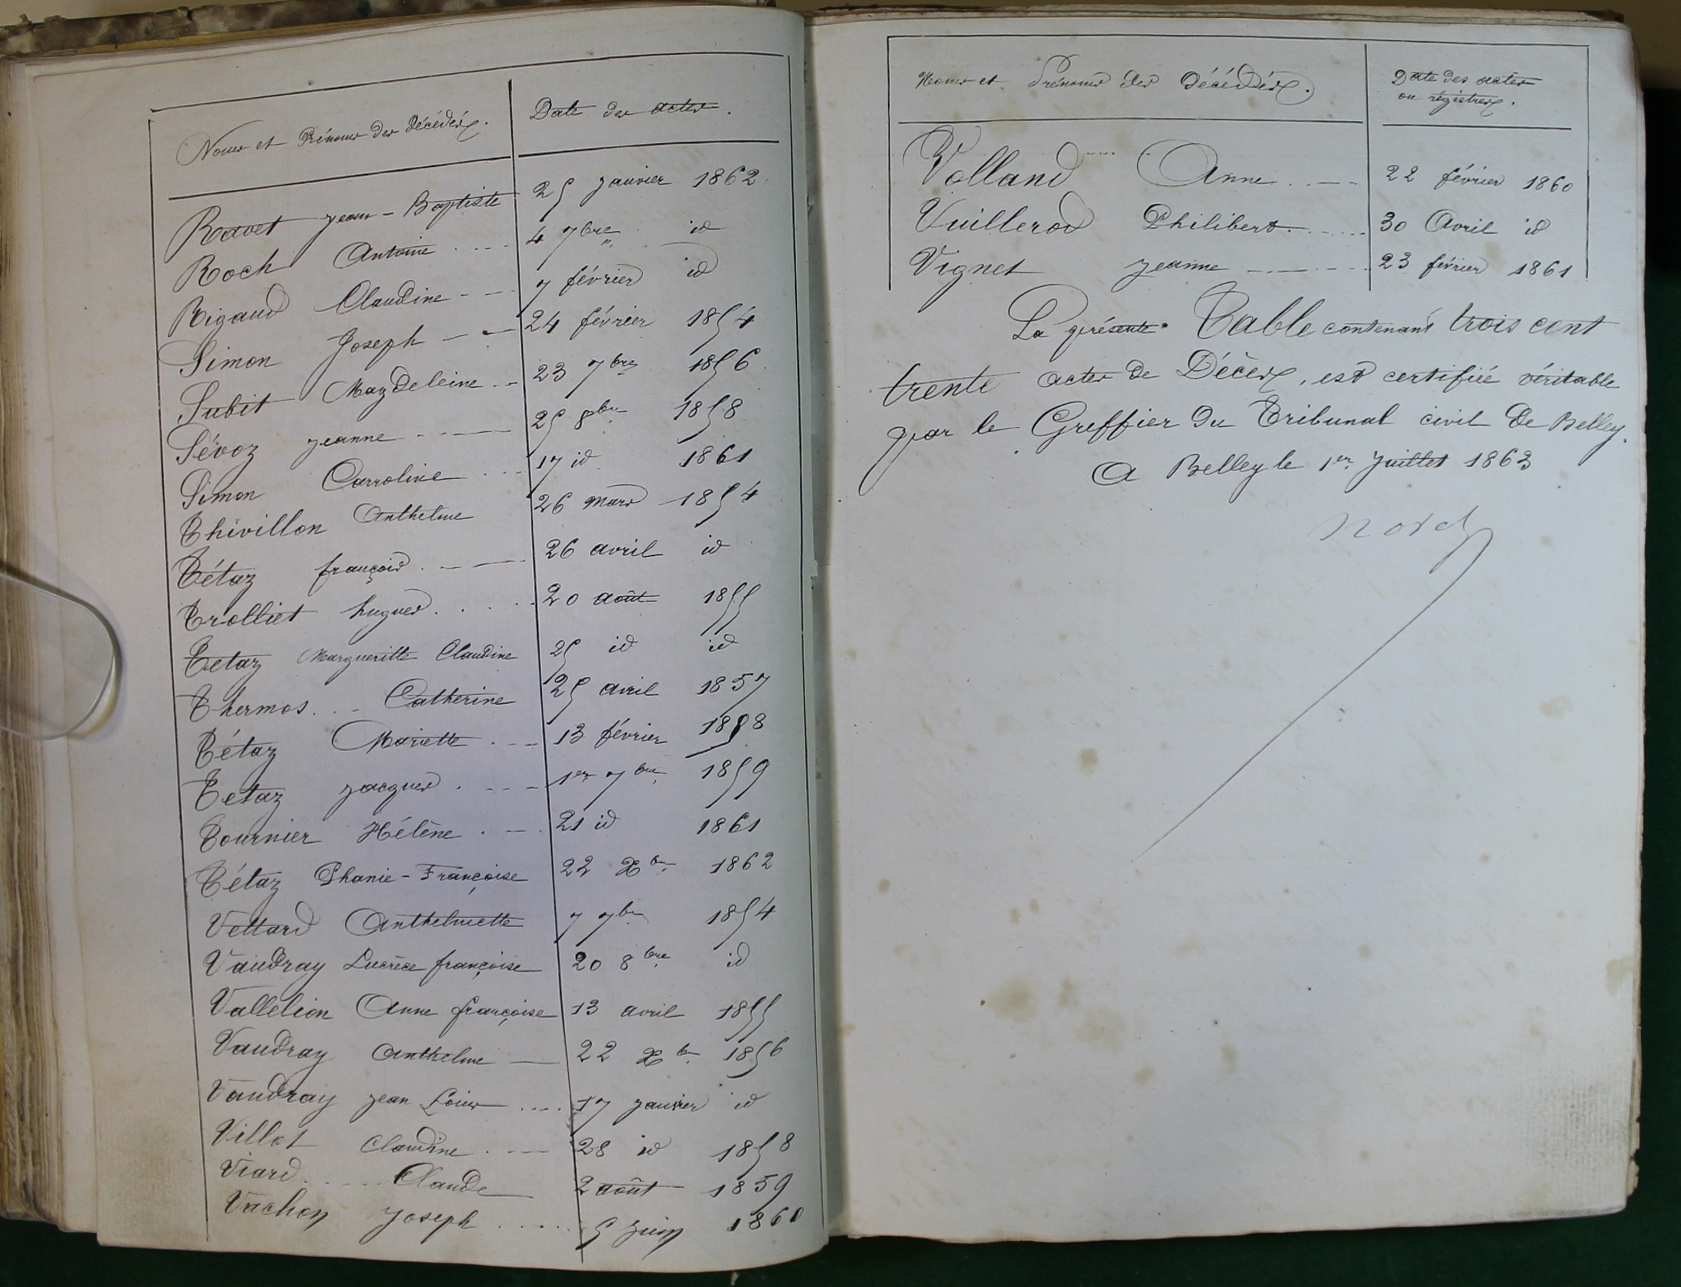 Noms et Prénoms des Décédés. Date des actes.
Ravet jean-Baptiste 25 janvier 1862
Roch Antoine 4 7bre id
Rigaud Claudine 7 février id
Simon Joseph 24 février 1854
Subit Magdeleine 23 7bre 1856
Sévoz jeanne 25 8bre 1858
Simon Carroline 17 id 1861
Thivillon Anthelme 26 mars 1854
Tétaz françois 26 avril id
Trolliet hugues 20 août 1855
Tetaz Margueritte Claudine 25 id id
Thermos Catherine 25 avril 1857
Tétaz Mariette 13 février 1858
Tetaz jacques 1er 7bre 1859
Tournier Hélène 21 id 1861
Tétaz Phanie-Françoise 22 Xbre 1862
Vettard Anthelmette 7 7bre 1854
Vaudray Lucrèce françoise 20 8bre id
Vallelion Anne françoise 13 avril 1855
Vaudray Anthelme 22 Xbre 1856
Vaudray jean Louis 17 janvier id
Villot Claudine 28 id 1858
Viard Claude 2 août 1859
Vachon Joseph 5 juin 1860
Noms et Prénoms des Décédés. Date des actes
ou régistres.
Volland Anne 22 février 1860
Vuillerod Philibert 30 Avril id
Vignet jeanne 23 février 1861
La présente Table contenant trois cent
trente actes de Décès, est certifiée véritable
par le Greffier du Tribunal civil de Belley.
A Belley le 1er juillet 1863